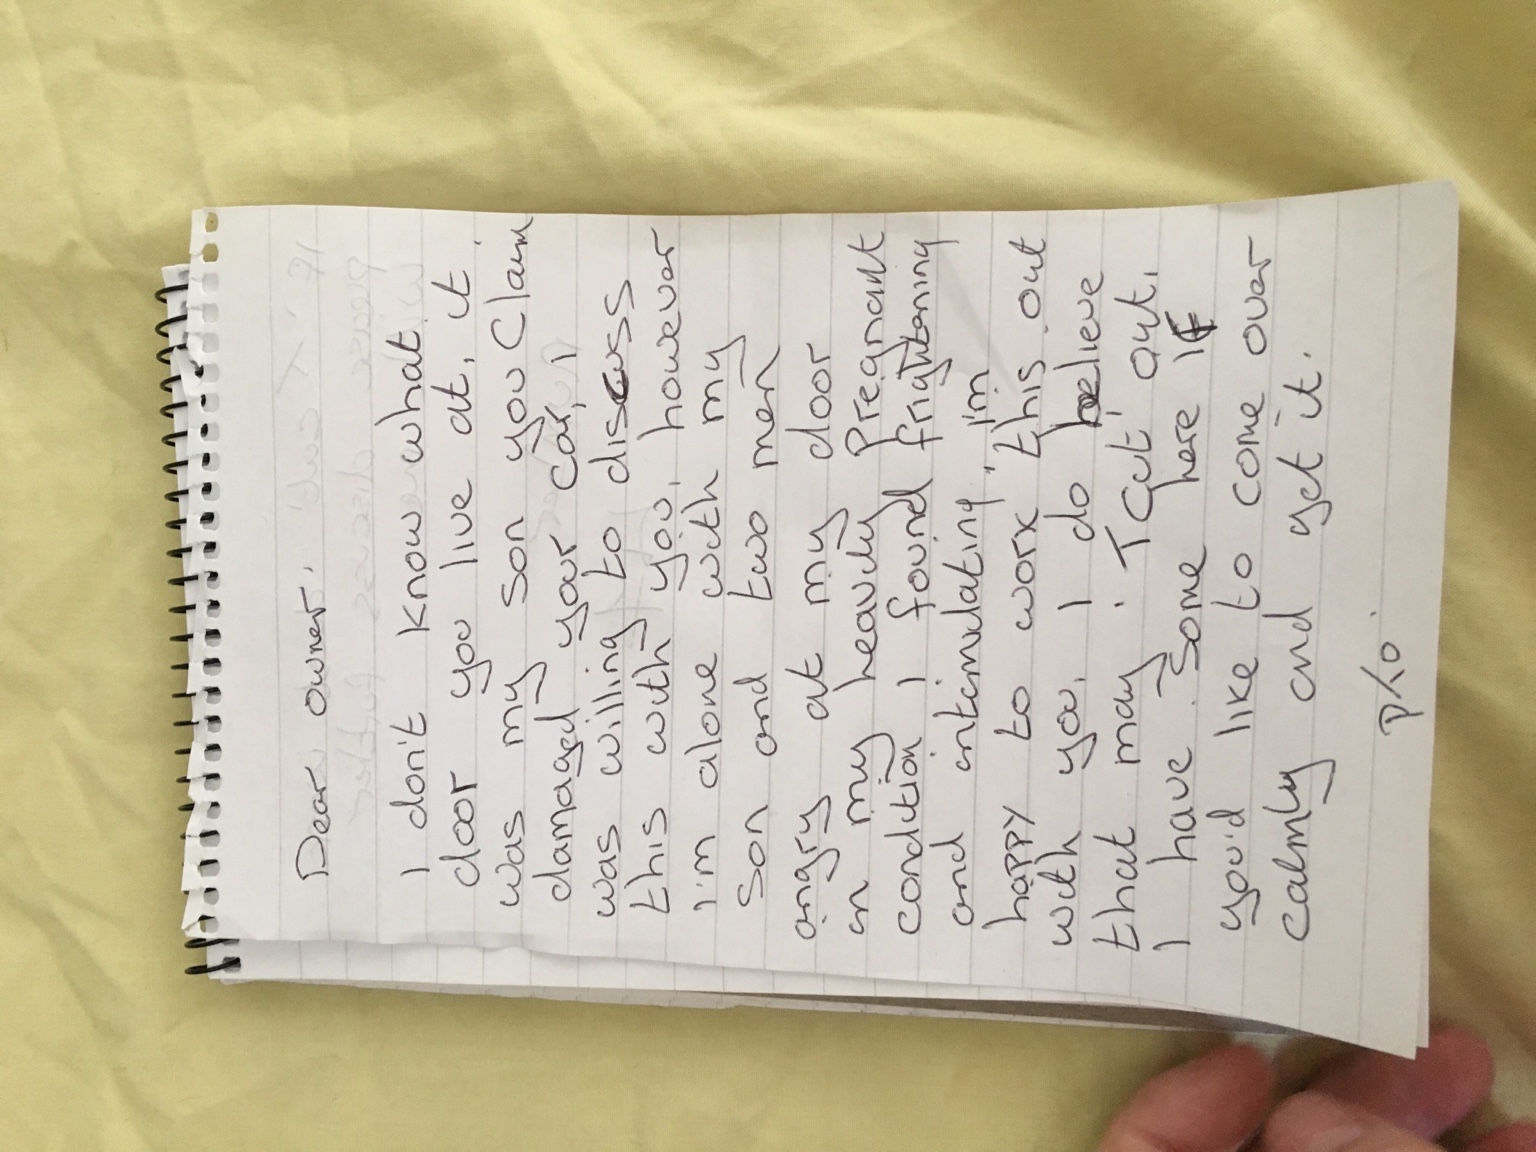 Dear owner.
I don't know what
door you live at, it
was my son you claim
damaged your car, I
was willing to discuss
this with you, however
I'm alone with my
son and two men
angry at my door
in my heavily Pregnant
condition I found frightening
and intimulating, I'm
happy to work this out
with you, I do believe
that may . T Cut' out,
I have some here If
you'd like to come over
calmly and get it.
P/O